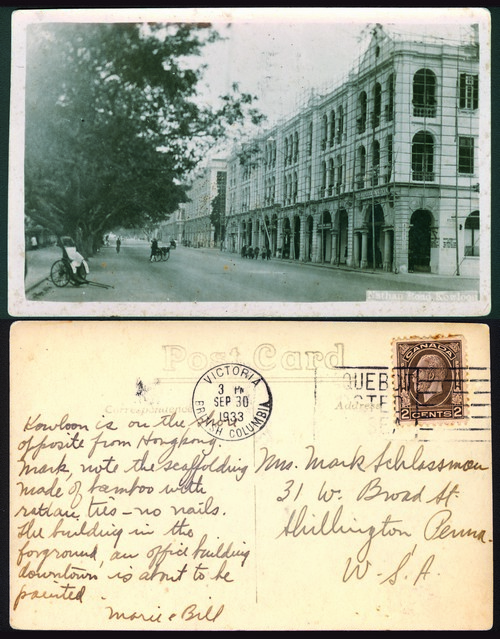 Post Card
Correspondence
Address
VICTORIA
3 PM
SEP 30
1933
BRITISH COLUMBIA
CANADA
2 CENTS 2
Kowloon is on the
opposite from Hongkong.
Mark, note the scaffolding
made of bamboo with
rattan ties - no nails.
The building in the
forground, an office building
downtown is about to be
painted.
Marie & Bill
Mrs. Mark Schlossman
31 W. Broad St.
Shillington, Penna.
U.S.A.